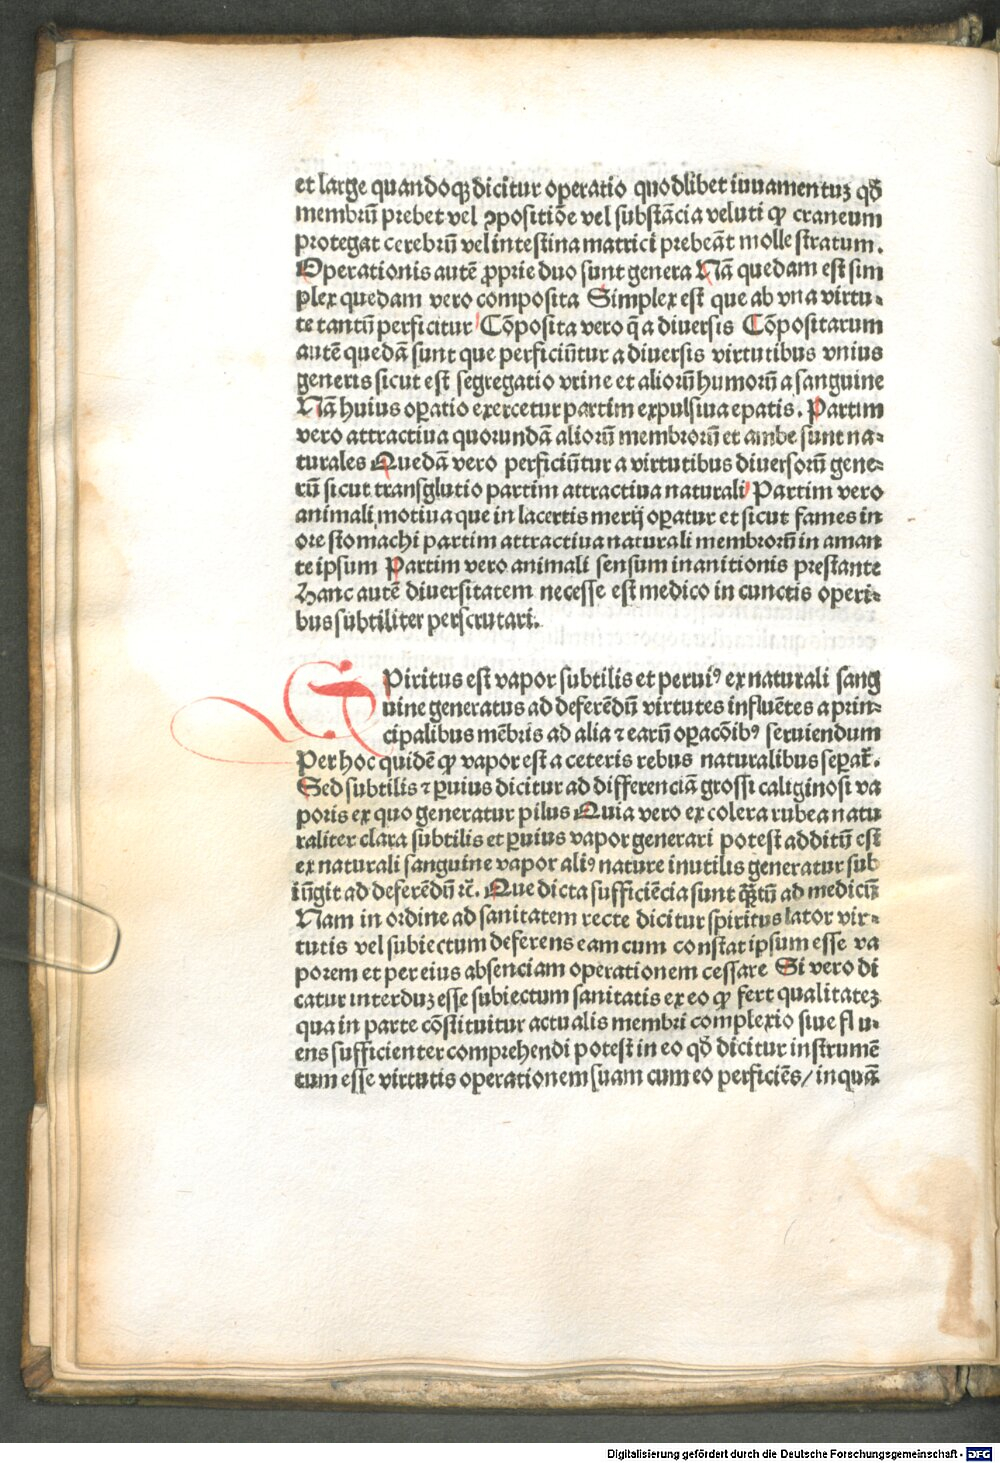 et large quandoqꝫ dicitur operatio quodlibet iuuamentuꝫ qð
membrū prebet vel ꝯpositiōe vel substācia veluti qꝫ craneum
protegat cerebrū vel intestina matrici prebeāt molle stratum.
Operationis autē ꝓprie duo sunt genera Nā quedam est sim
plex quedam vero composita Simplex est que ab vna virtu-
te tantū perficitur Cōposita vero q̄ a diuersis Cōpositarum
autē quedā sunt que perficiūtur a diuersis virtutibus vnius
generis sicut est segregatio vrine et aliorū humorū a sanguine
Nā huius oꝑatio exercetur partim expulsiua epatis. Partim
vero attractiua quorundā aliorū membrorū et ambe sunt na-
turales Quedā vero perficiūtur a virtutibus diuersorū gene-
rū sicut transglutio partim attractiua naturali Partim vero
animali motiua que in lacertis merij oꝑatur et sicut fames in
ore stomachi partim attractiua naturali membrorū in aman
te ipsum Partim vero animali sensum inanitionis prestante
Hanc autē diuersitatem necesse est medico in cunctis operi-
bus subtiliter perscrutari.
SPiritus est vapor subtilis et peruiꝰ ex naturali sang
uine generatus ad deferēdū virtutes influētes a prin-
cipalibus mēbris ad alia ⁊ earū oꝑacōibꝰ seruiendum
Per hoc quidē qꝫ vapor est a ceteris rebus naturalibus seꝑat̄.
Sed subtilis ⁊ ꝑuius dicitur ad differenciā grossi caliginosi va
poris ex quo generatur pilus Quia vero ex colera rubea natu
raliter clara subtilis et ꝑuius vapor generari potest additū est
ex naturali sanguine vapor aliꝰ nature inutilis generatur sub
iūgit ad deferēdū ⁊c̄. Que dicta sufficiēcia sunt q̄ꝫtū ad medicū
Nam in ordine ad sanitatem recte dicitur spiritus lator vir-
tutis vel subiectum deferens eam cum constat ipsum esse va
porem et per eius absenciam operationem cessare Si vero di
catur interduꝫ esse subiectum sanitatis ex eo qꝫ fert qualitateꝫ
qua in parte cōstituitur actualis membri complexio siue flu-
ens sufficienter comprehendi potest in eo qð dicitur instrumē
tum esse virtutis operationem suam cum eo perficiēs/ inquā
Digitalisierung gefördert durch die Deutsche Forschungsgemeinschaft - DFG